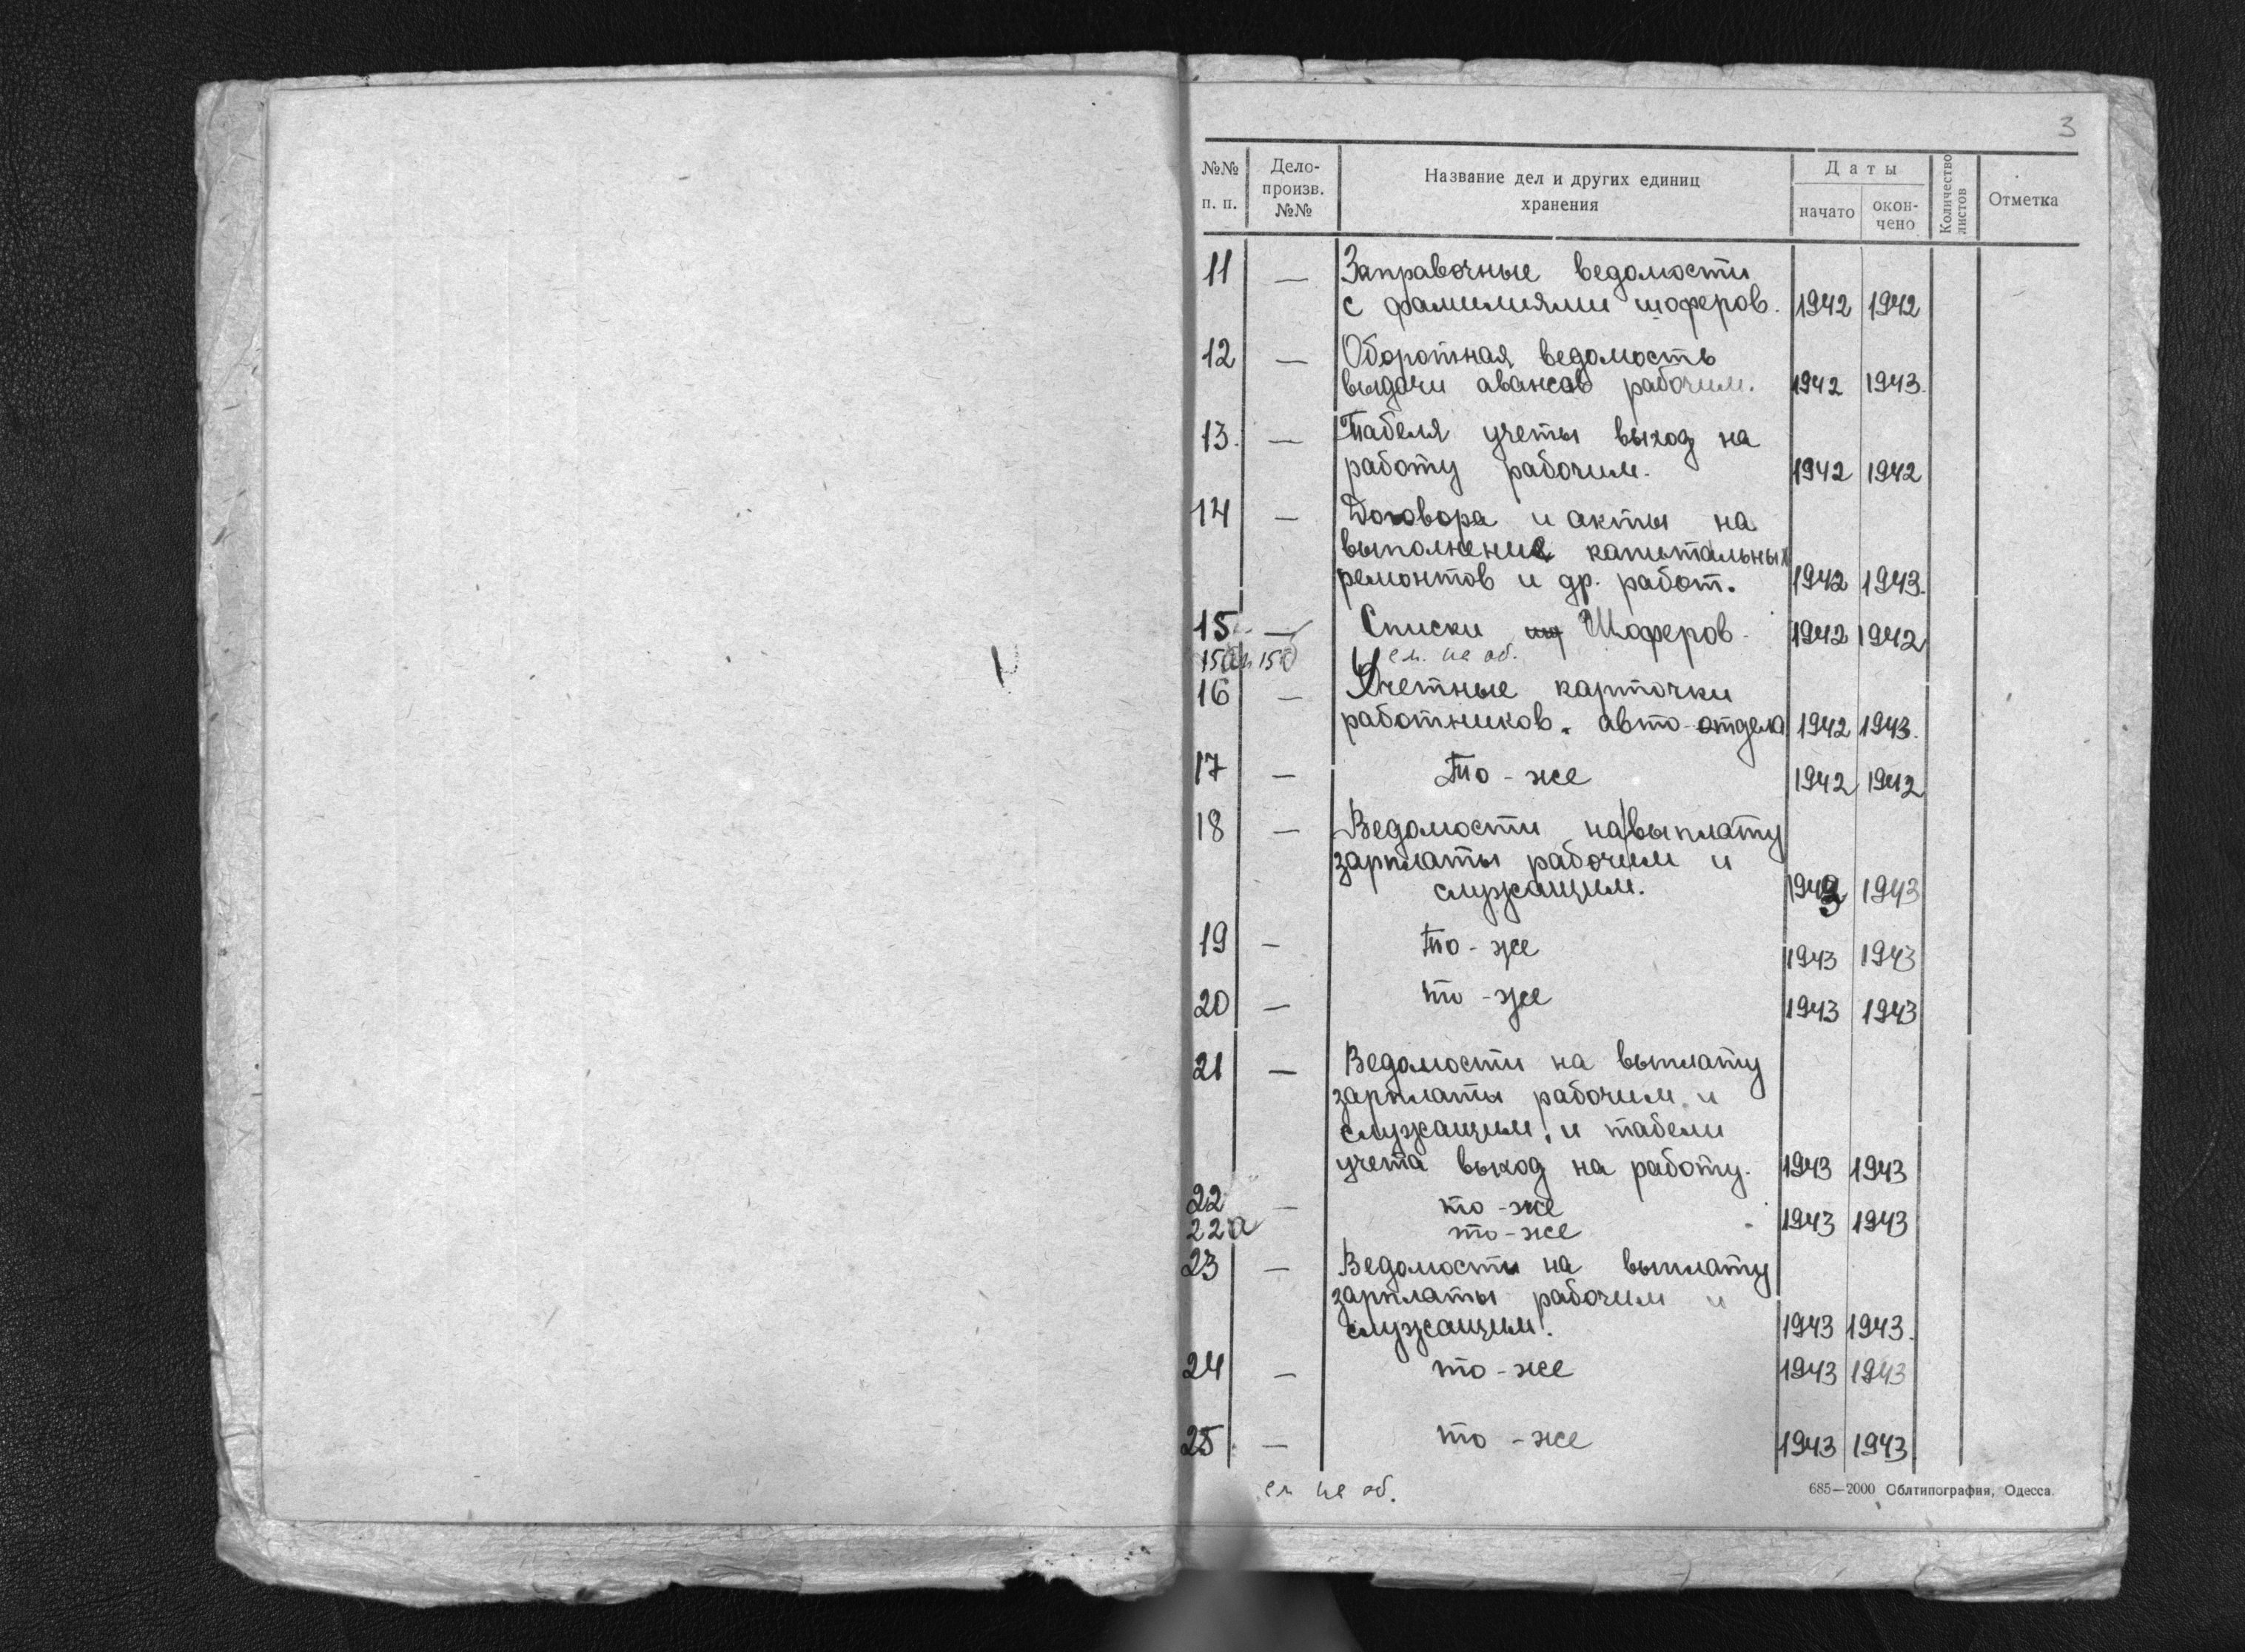 3
№№ п. п.
Дело-произв. №№
Название дел и других единиц хранения
Даты
начато
окон-чено
Количество листов
Отметка
11 — Заправочные ведомости
с фамилиями шоферов. 1942 1942
12 — Оборотная ведомость
выдачи авансов рабочим. 1942 1943.
13. — Табеля учеты выход на
работу рабочим. 1942 1942
14 — Договора и акты на
выполнение капитальных
ремонтов и др. работ. 1942 1943.
15 — Списки Шоферов. 1942 1942
15а и 15б см. на об.
16 — Учетные карточки
работников. авто-отдела 1942 1943.
17 — То-же 1942 1942
18 — Ведомости на выплату
зарплаты рабочим и
служащим. 1943 1943
19 — То-же 1943 1943
20 — то-же 1943 1943
21 — Ведомости на выплату
зарплаты рабочим и
служащим, и табели
учета выход на работу. 1943 1943
22 — то-же
22а то-же 1943 1943
23 — Ведомости на выплату
зарплаты рабочим и
служащим. 1943 1943.
24 — то-же 1943 1943
25. — то-же 1943 1943
см на об.
685—2000 Облтипография, Одесса.